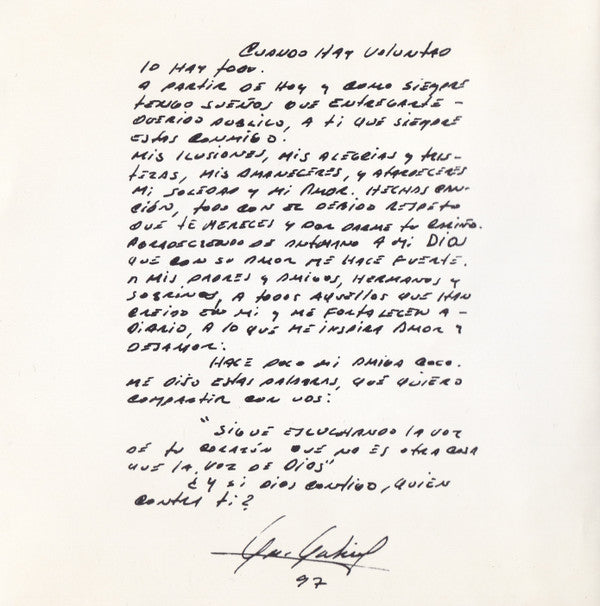 CUANDO HAY VOLUNTAD
LO HAY TODO.
A PARTIR DE HOY Y COMO SIEMPRE
TENGO SUEÑOS QUE ENTREGARTE -
QUERIDO PUBLICO, A TI QUE SIEMPRE
ESTAS CONMIGO.
MIS ILUSIONES, MIS ALEGRIAS Y TRIS-
TEZAS, MIS AMANECERES, Y ATARDECERES
MI SOLEDAD Y MI AMOR. HECHAS CAN-
CIÓN, TODO CON EL DEBIDO RESPETO
QUE TE MERECES Y POR DARME TU CARIÑO.
AGRADECIENDO DE ANTEMANO A MI DIOS
QUE CON SU AMOR ME HACE FUERTE.
A MIS PADRES Y AMIGOS, HERMANOS Y
SOBRINOS, A TODOS AQUELLOS QUE HAN
CREIDO EN MI Y ME FORTALECEN A-
DIARIO, A LO QUE ME INSPIRA AMOR Y
DESAMOR.
HACE POCO MI AMIGA COCO.
ME DIJO ESTAS PALABRAS, QUE QUIERO
COMPARTIR CON VOS:
"SIGUE ESCUCHANDO LA VOZ
DE TU CORAZÓN QUE NO ES OTRA COSA
QUE LA VOZ DE DIOS"
¿Y SI DIOS CONTIGO, QUIEN
CONTRA TI?
97